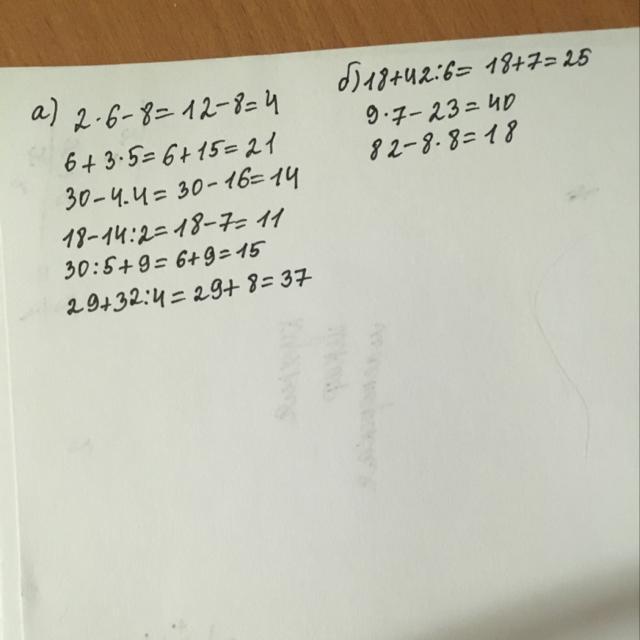 а) 2·6-8=12-8=4
6+3·5=6+15=21
30-4·4=30-16=14
18-14:2=18-7=11
30:5+9=6+9=15
29+32:4=29+8=37
б) 18+42:6=18+7=25
9·7-23=40
82-8·8=18